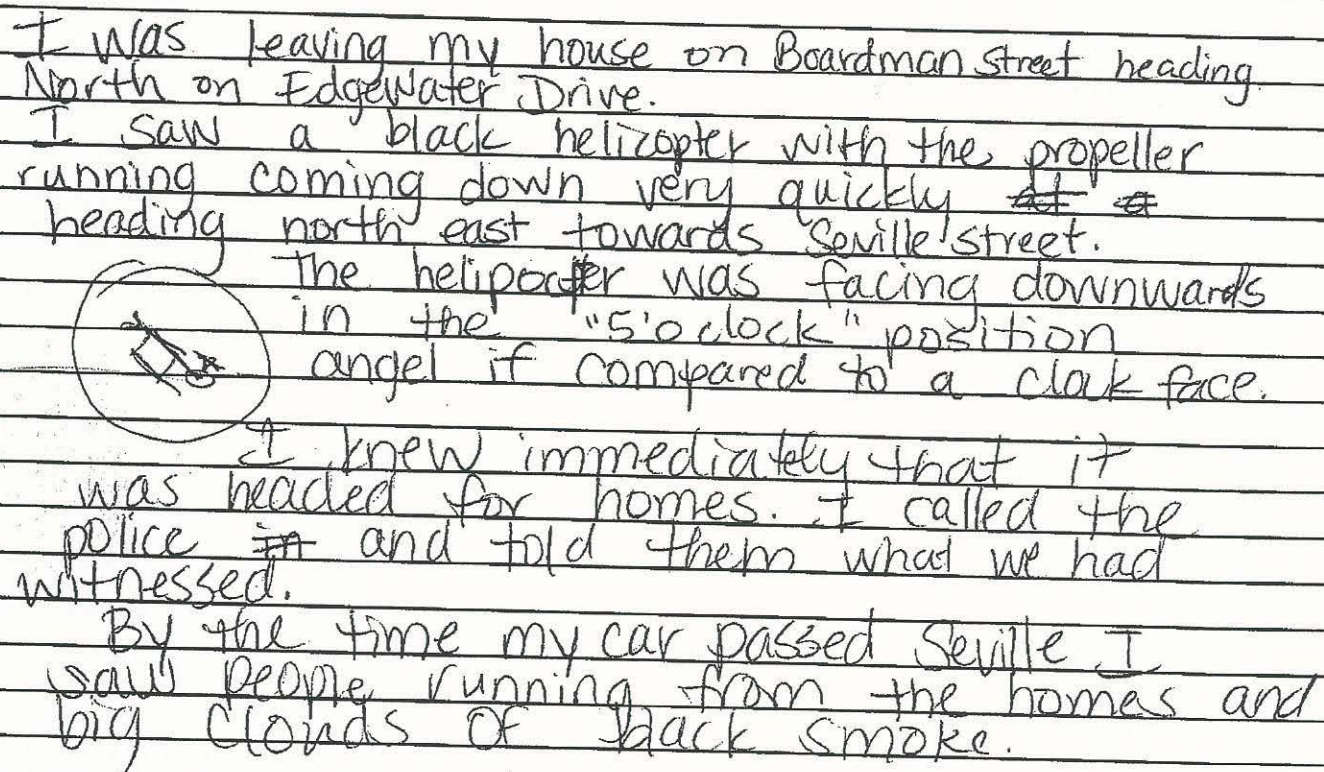 I was leaving my house on Boardman Street heading
North on Edgewater Drive.
I saw a black helicopter with the propeller
running coming down very quickly at a
heading north east towards Seville street.
The helipocter was facing downwards
in the "5'oclock" position
angel if compared to a clock face.
I knew immediately that it
was headed for homes. I called the
police in and told them what we had
witnessed.
By the time my car passed Seville I
saw people running from the homes and
big clouds of black smoke.